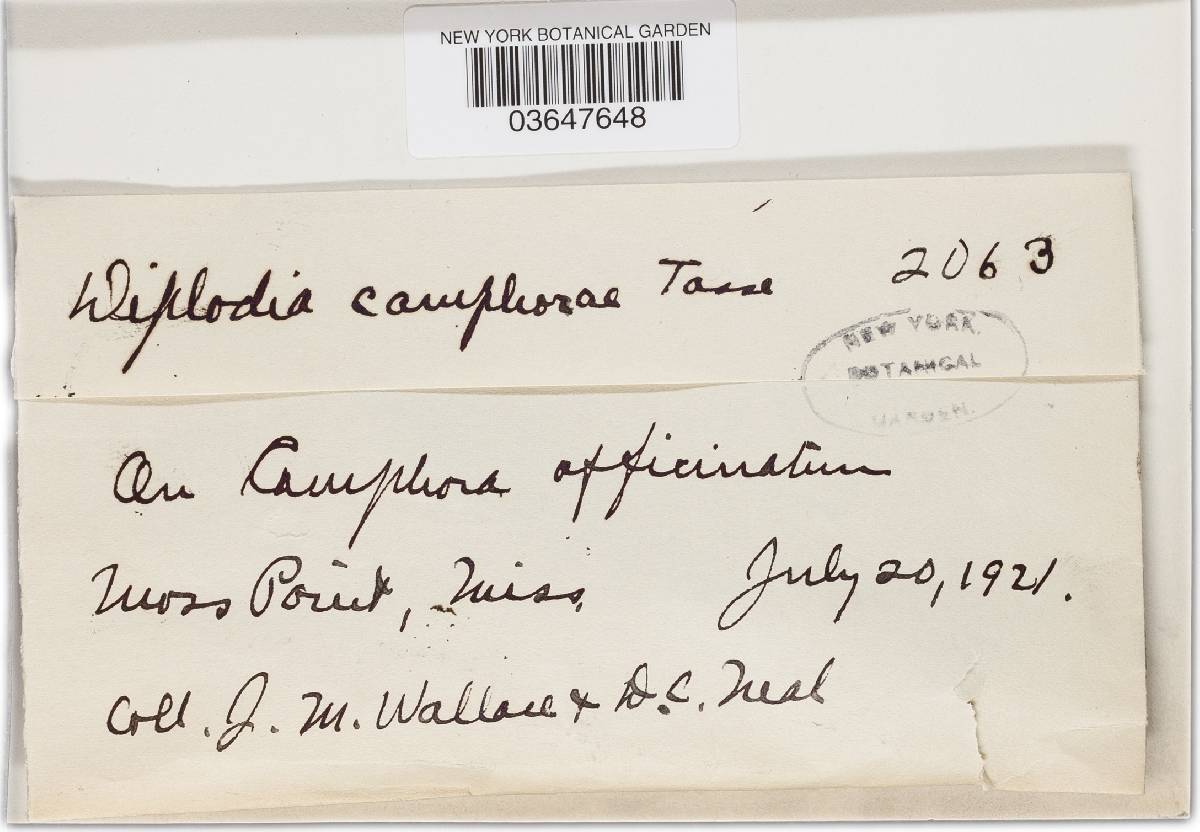 NEW YORK BOTANICAL GARDEN
03647648
Diplodia camphorae Tasse 2063
NEW YORK
BOTANICAL
GARDEN.
On Camphora officinatum
Moss Point, Miss. July 20, 1921.
Coll. J. M. Wallace & D.C. Neal